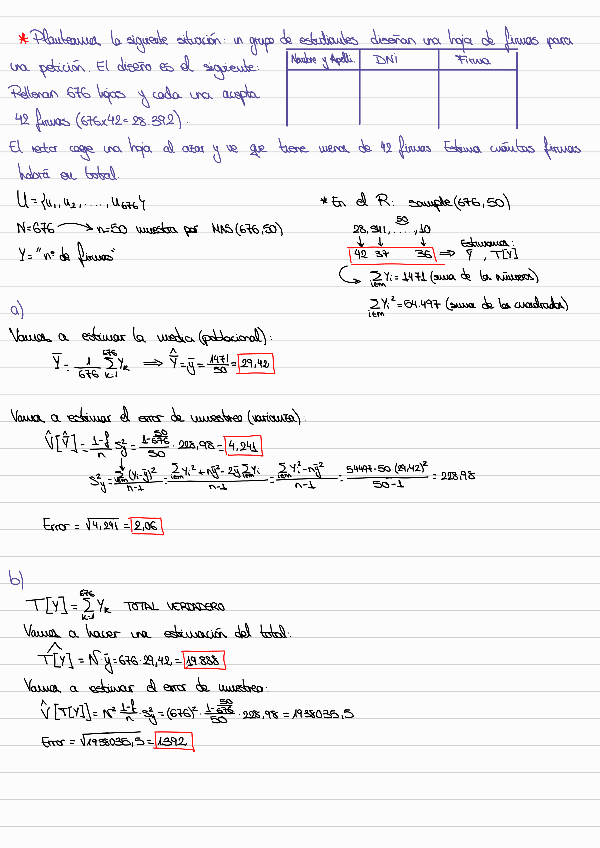 * Planteamos la siguiente situación: un grupo de estudiantes diseñan una hoja de firmas para
una petición. El diseño es el siguiente:
Nombre y Apell. DNI Firma
Rellenan 676 hojas y cada una acepta
42 firmas (676x42=28.392).
El rector coge una hoja al azar y ve que tiene menos de 42 firmas. Estima cuántas firmas
habrá en total.
U = {u₁, u₂, ...., u₆₇₆}
N=676 → n=50 muestra por MAS(676,50)
Y = "nº de firmas"
* En el R: sample(676,50)
50
28, 341, ...., 10
↓ ↓ ↓
42 37 36 ⇒ Estimamos: Ȳ, T[Y]
∑ᵢ∈ₘ Yᵢ = 1471 (suma de los números)
∑ᵢ∈ₘ Yᵢ² = 54.497 (suma de los cuadrados)
a)
Vamos a estimar la media (poblacional):
Ȳ = 1/676 ∑ₖ₌₁⁶⁷⁶ Yₖ ⟹ Ȳ̂ = ȳ = 1471/50 = 29,42
Vamos a estimar el error de muestreo (varianza):
V̂[Ȳ̂] = (1-f)/n S²y = (1-50/676)/50 · 228,98 = 4,241
S²y = ∑ᵢ∈ₘ(Yᵢ-ȳ)²/(n-1) = (∑ᵢ∈ₘ Yᵢ² + nȳ² - 2ȳ ∑ᵢ∈ₘ Yᵢ)/(n-1) = (∑ᵢ∈ₘ Yᵢ² - nȳ²)/(n-1) = (54497-50·(29,42)²)/(50-1) = 228,98
Error = √4,241 = 2,06
b)
T[Y] = ∑ₖ₌₁⁶⁷⁶ Yₖ TOTAL VERDADERO
Vamos a hacer una estimación del total:
T̂[Y] = N·ȳ = 676·29,42 = 19.888
Vamos a estimar el error de muestreo:
V̂[T[Y]] = N² (1-f)/n · S²y = (676)² · (1-50/676)/50 · 228,98 = 1938035,5
Error = √1938035,5 = 1392